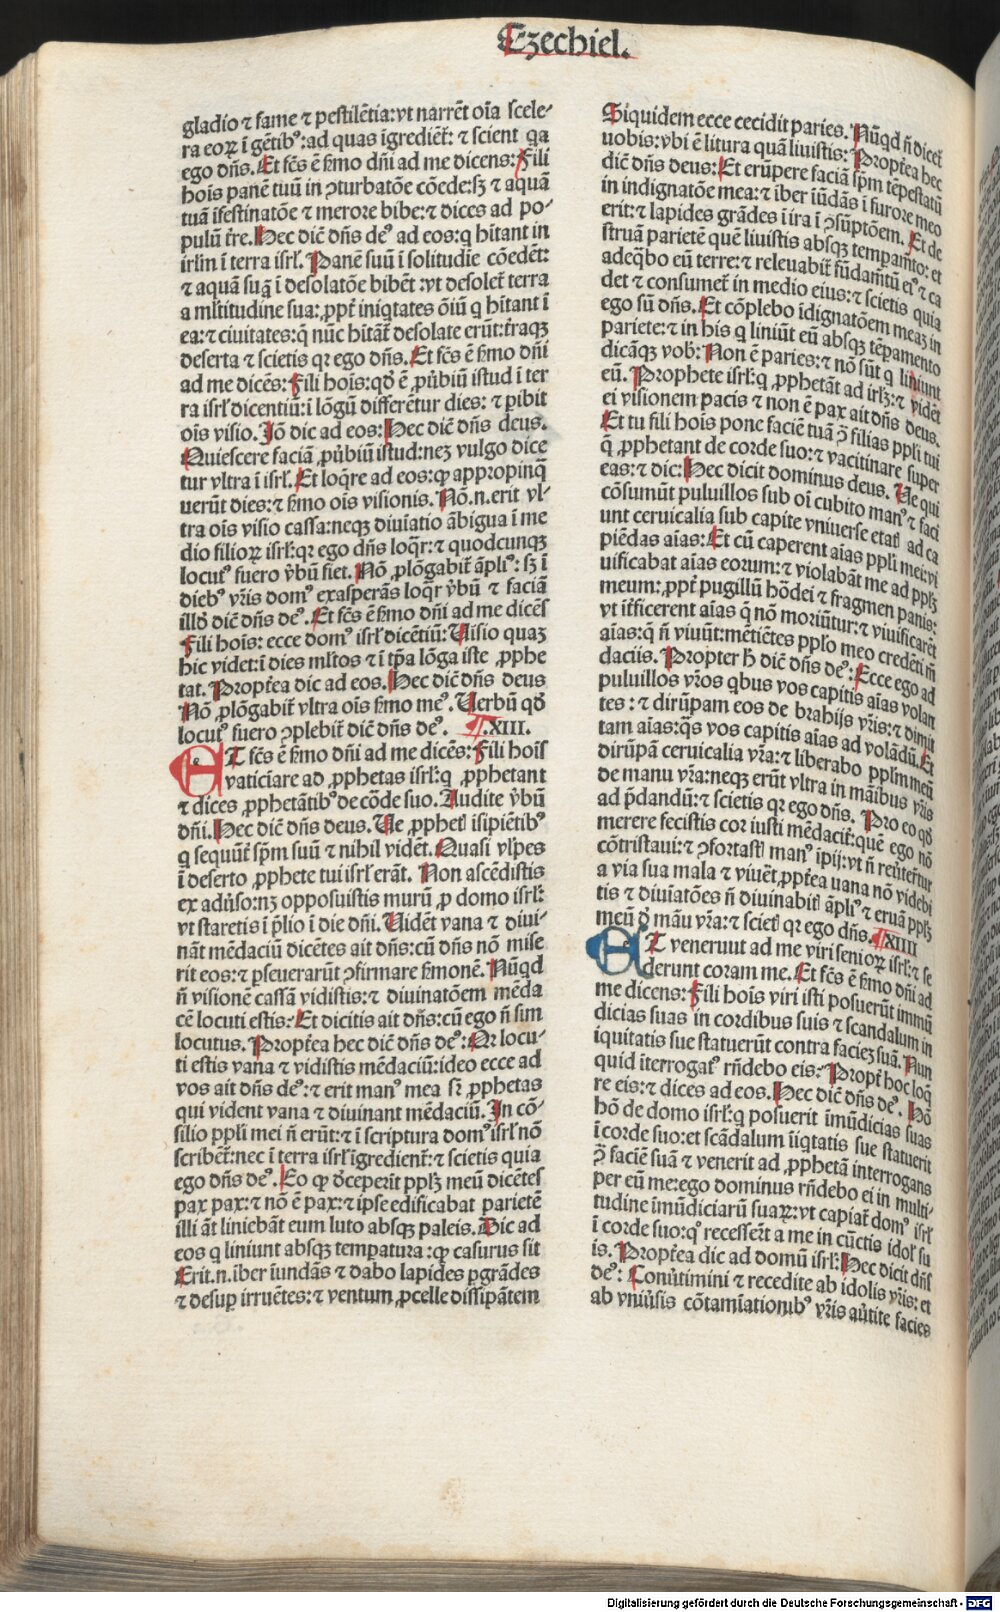 Ezechiel.
gladio ⁊ fame ⁊ pestilētia:vt narrēt oīa scele-
ra eoꝝ ī gētibꝰ:ad quas īgrediēt̄: ⁊ scient qa
ego dn̄s. Et fcs̄ ē s̄mo dn̄i ad me dicens: Fili
hoīs panē tuū in ꝯturbatōe cōede:sꝫ ⁊ aquā
tuā īfestinatōe ⁊ merore bibe:⁊ dices ad po-
pulū t̄re. Hec dic̄ dn̄s deꝰ ad eos:q hītant in
irlm̄ ī terra isrl̄. Panē suū ī solitudīe cōedēt:
⁊ aquā suā ī desolatōe bibēt :vt desolet̄ terra
a ml̄titudine sua:ꝓpt̄ iniqtates oīū q hītant ī
ea:⁊ ciuitates:q̄ nūc hītāt̄ desolate erūt:t̄raqꝫ
deserta ⁊ scietis qꝛ ego dn̄s. Et fcs̄ ē s̄mo dn̄i
ad me dicēs: Fili hoīs:qd̄ ē ꝓůbiū istud ī ter
ra isrl̄ dicentiū:ī lōgū differētur dies: ⁊ ꝑibit
oīs visio. Jō dic ad eos: Hec dic̄ dn̄s deus.
Quiescere faciā ꝓůbiū istud:neqꝫ vulgo dice
tur vltra ī isrl̄. Et loq̄re ad eos:ꝙ appropinq̄
uerūt dies:⁊ s̄mo oīs visionis. Nō.n.erit vl-
tra oīs visio cassa:neqꝫ diuīatio ābigua ī me
dio filioꝝ isrl̄:qꝛ ego dn̄s loq̄r:⁊ quodcunqꝫ
locutꝰ fuero v̄bū fiet. Nō ꝓlōgabit̄ āpliꝰ: sꝫ ī
diebꝰ vr̄is domꝰ exasperās loq̄r v̄bū ⁊ faciā
illd̄ dic̄ dn̄s deꝰ. Et fcs̄ ē s̄mo dn̄i ad me dicēs
Fili hoīs: ecce domꝰ isrl̄ dicētiū: Uisio quaꝫ
hic videt:ī dies ml̄tos ⁊ ī tp̄a lōga iste ꝓphe
tat. Propt̄ea dic ad eos. Hec dic̄ dn̄s deus
Nō ꝓlōgabit̄ vltra oīs s̄mo meꝰ. Uerbū qd̄
locutꝰ fuero ꝯplebit̄ dic̄ dn̄s deꝰ. ¶.XIII.
ET fcs̄ ē s̄mo dn̄i ad me dicēs: Fili hoīs
vaticīare ad ꝓphetas isrl̄:q ꝓphetant
⁊ dices ꝓphetātibꝰ de cōde suo. Audite v̄bū
dn̄i. Hec dic̄ dn̄s deus. Ue ꝓphetꝭ īsipiētibꝰ
q sequūt̄ sp̄m suū ⁊ nihil vidēt. Quasi vlpes
ī deserto ꝓphete tui isrl̄ erāt. Non ascēdistis
ex adůso:nꝫ opposuistis murū ꝓ domo isrl̄:
vt staretis ī p̄lio ī die dn̄i. Uidēt vana ⁊ diui-
nāt mēdaciū dicētes ait dn̄s:cū dn̄s nō mise
rit eos:⁊ ꝑseuerarūt ꝯfirmare s̄monē. Nūqd
n̄ visionē cassā vidistis:⁊ diuinatōem mēda
cē locuti estis: Et dicitis ait dn̄s:cū ego n̄ sim
locutus. Propt̄ea hec dic̄ dn̄s deꝰ: Qꝛ locu-
ti estis vana ⁊ vidistis mēdaciū:ideo ecce ad
vos ait dn̄s deꝰ:⁊ erit manꝰ mea sꝑ ꝓphetas
qui vident vana ⁊ diuinant mēdaciū. In cō-
silio ppl̄i mei n̄ erūt:⁊ ī scriptura domꝰ isrl̄ nō
scribet̄:nec ī terra isrl̄ īgredient̄:⁊ scietis quia
ego dn̄s deꝰ. Eo ꝙ d̄ceperūt pplꝫ meū dicētes
pax pax:⁊ nō ē pax:⁊ ipse edificabat parietē
illi āt liniebāt eum luto absqꝫ paleis. Dic ad
eos q liniunt absqꝫ temꝑatura:ꝙ casurus sit
Erit.n.iber īundās ⁊ dabo lapides ꝑgrādes
⁊ desuꝑ irruētes:⁊ ventum ꝓcelle dissipātem
Siquidem ecce cecidit paries. Nūqd n̄ dicet̄
uobis:vbi ē litura quā liuistis: Propt̄ea hec
dic̄ dn̄s deus: Et erūpere faciā sp̄m tēpestatū
in indignatōe mea:⁊ iber iūdās ī furore meo
erit:⁊ lapides grādes ī ira ī ꝯsūptōem. Et de
struā parietē quē liuistis absqꝫ tempam̄to: et
adeq̄bo eū terre:⁊ releuabit̄ fūdam̄tū eiꝰ ⁊ ca
det ⁊ consumet̄ in medio eius:⁊ scietis quia
ego sū dn̄s. Et cōplebo īdignatōem meaꝫ in
pariete:⁊ in his q liniūt eū absqꝫ tēpamento
dicāqꝫ vob̄: Non ē paries:⁊ nō sūt q liniunt
eū. Prophete isrl̄:q ꝓphetāt ad irlꝫ:⁊ vidēt
ei visionem pacis ⁊ non ē pax ait dn̄s deus.
Et tu fili hoīs pone faciē tuā ꝯ̄ filias ppl̄i tui
q̄ ꝓphetant de corde suo:⁊ vacitinare super
eas:⁊ dic: Hec dicit dominus deus. Ue qui
cōsumūt puluillos sub oī cubito manꝰ ⁊ faci
unt ceruicalia sub capite vniuerse etatꝭ ad ca
piēdas aīas: Et cū caperent aīas ppl̄i mei:vi
uificabat aīas eorum:⁊ violabāt me ad pplꝫ
meum:ꝓpt̄ pugillū hōdei ⁊ fragmen panis:
vt īt̄ficerent aīas q̄ nō moriūtur:⁊ viuificarēt
aīas:q̄ n̄ viuūt:mētiētes ppl̄o meo credēti m̄
daciis. Propter h̄ dic̄ dn̄s deꝰ: Ecce ego ad
puluillos vr̄os qbus vos capitis aīas volan
tes:⁊ dirūpam eos de brahijs vr̄is:⁊ dimit
tam aīas:q̄s vos capitis aīas ad volādū. Et
dirūpā ceruicalia vr̄a:⁊ liberabo ppl̄m meū
de manu vr̄a:neqꝫ erūt vltra in māibus vr̄is
ad p̄dandū:⁊ scietis qꝛ ego dn̄s. Pro eo qd̄
merere fecistis cor iusti mēdacit̄:quē ego nō
cōtristaui:⁊ ꝯfortastꝭ manꝰ ipij:vt n̄ reůteret̄ur
a via sua mala ⁊ viuēt:ꝓpt̄ea uana nō videbi
tis ⁊ diuīatōes n̄ diuinabitꝭ āpliꝰ ⁊ eruā pplꝫ
meū d̄ māu vr̄a:⁊ scietꝭ qꝛ ego dn̄s. ¶XIIII
ET veneruut ad me viri senioꝝ isrl̄:⁊ se
derunt coram me. Et fcs̄ ē s̄mo dn̄i ad
me dicens: Fili hoīs viri isti posuerūt immū
dicias suas in cordibus suis ⁊ scandalum in
iquitatis sue statuerūt contra facieꝫ suā. Nun
quid īterrogatꝰ rn̄debo eis: Propt̄ hoc loq̄
re eis:⁊ dices ad eos. Hec dic̄ dn̄s deꝰ. Hō
hō de domo isrl̄:q posuerit īmūdicias suas
ī corde suo:et scādalum īiqtatis sue statuerit
ꝯ̄ faciē suā ⁊ venerit ad ꝓphetā interrogans
per eū me:ego dominus rn̄debo ei in multi-
tudine īmūdiciarū suaꝝ:vt capiat̄ domꝰ isrl̄
ī corde suo:qꝰ recesser̄t a me in cūctis idolꝭ su
is. Propt̄ea dic ad domū isrl̄: Hec dicit dn̄s
deꝰ: Conůtimini ⁊ recedite ab idolis vr̄is: et
ab vniůsis cōtamīationibꝰ vr̄is aůtite facies
Digitalisierung gefördert durch die Deutsche Forschungsgemeinschaft - DFG